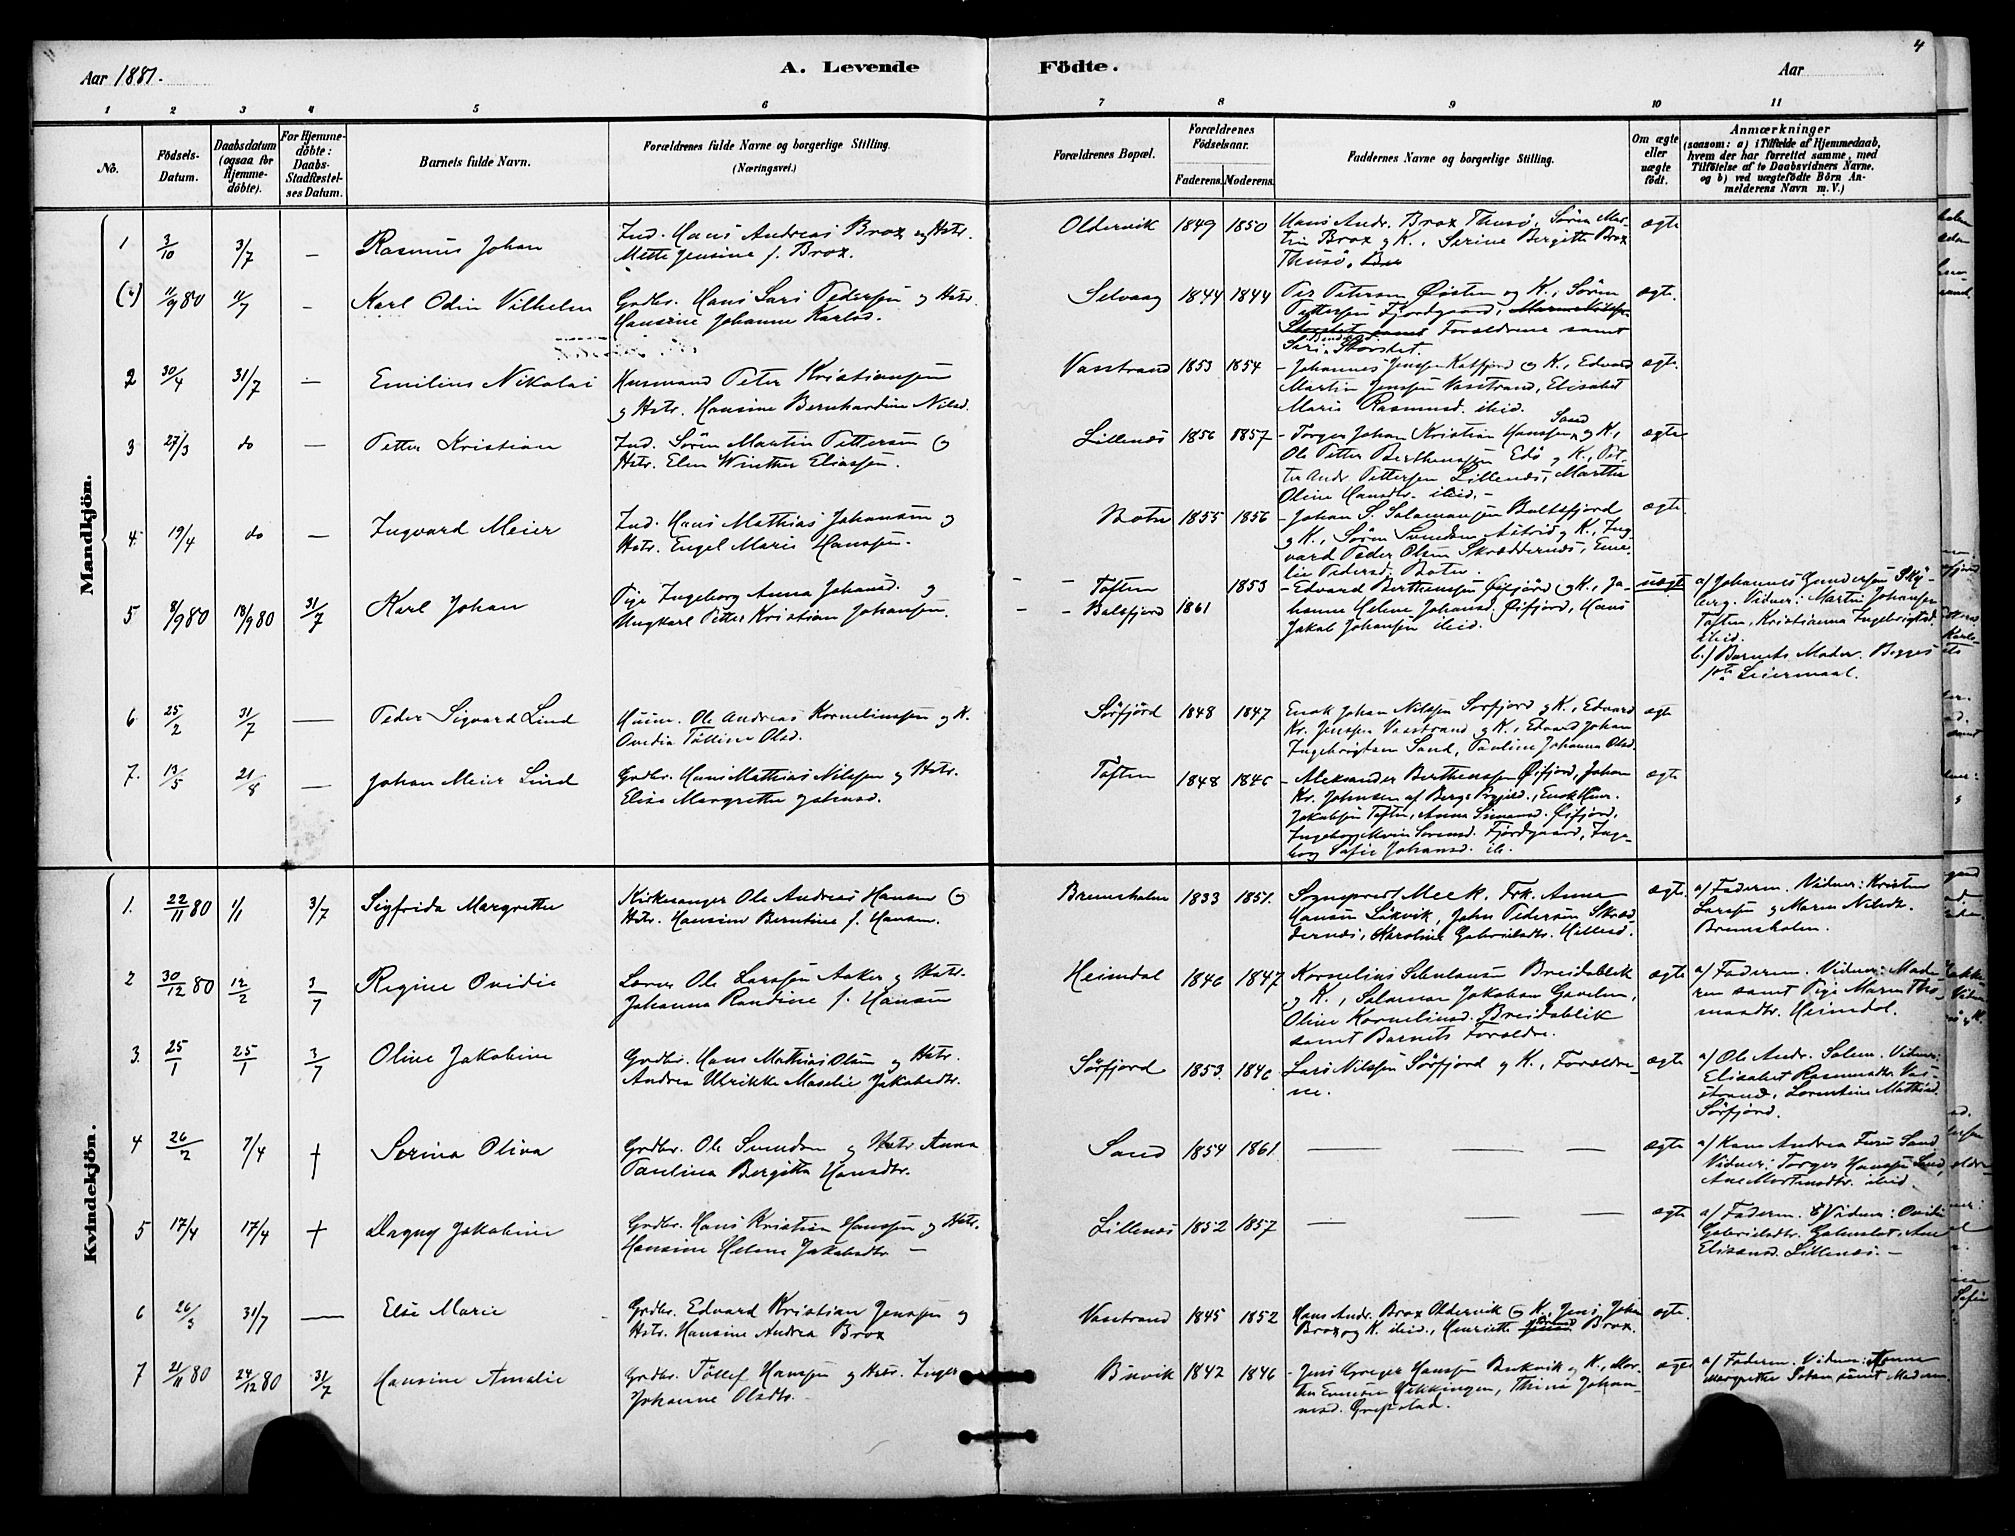 4
Aar 1881.
A. Levende Fødte.
Aar
1 2 3 4 5 6 7 8 9 10 11
No.
Födsels-
Datum.
Daabsdatum
(ogsaa for
Hjemme-
döbte).
For Hjemme-
döbte:
Daabs-
Stadfæstel-
ses Datum.
Barnets fulde Navn.
Forældrenes fulde Navne og borgerlige Stilling.
(Næringsvei.)
Forældrenes Bopæl.
Forældrenes
Födselsaar.
Faderens. Moderens.
Faddernes Navne og borgerlige Stilling.
Om ægte
eller
uægte
födt.
Anmærkninger
(saasom: a) i Tilfælde af Hjemmedaab,
hvem der har forrettet samme, med
Tilföielse af to Daabsvidners Navne.
og b) ved uægtefödte Börn An-
melderens Navn m. V.)
Mandkjön.
1 3/10 3/7 — Rasmus Johan
Ind. Hans Andreas Brox og Hstr.
Mette Jensine f. Brox.
Oldervik 1849 1850
Hans Andr. Brox Thusø, Søren Mar-
tin Brox og K., Serine Bergitte Brox
Thusø.
ægte
11/9 80 — Karl Odin Vilhelm
Grdbr. Hans Lars Pedersen og Hstr.
Hansine Johanne Karlsd.
Selvaag 1844 1844
Per Petersen Øisten og K., Søren
Pettersen Fjordgaard,
Forældrene samt
ægte.
2 30/4 31/7 — Emilius Nikolai
Husmand Peter Kristiansen
og Hstr. Hansine Bernhardine Nilsd.
Vasstrand 1853 1854
- Johannes Jenssen Katfjord og K., Edvard
Martin Jenssen Vasstrand, Elisabet
Marie Rasmusd. ibid.
ægte.
3 27/3 do — Petter Kristian
Ind. Sören Martin Pettersen og
Hstr. Elen Winther Eliassen.
Lillenes 1856 1857
- Torger Johan Kristian Hanssen Sand og K.,
Ole Petter Berthenssen Edø og K., Pet-
ter Andr. Pettersen Lillenes, Marthe
Oline Hansdtr. ibid. -
ægte
4. 19/4 do — Ingvard Meier
Ind. Hans Mathias Johansen og
Hstr. Engel Marie Hanssen.
Botn 1855 1856
- Johan S. Salamonsen Baltsfjord
og K., Søren Svendsen Astrid og K., Ing-
vard Peder Olsen Skræddernes, Eme-
lie Pedersd. Botn.
ægte.
5 8/9 80 18/9 80 31/7 Karl Johan
Pige Ingeborg Anna Johansd. og
Ungkarl Petter Kristian Johansen.
- - Toften 1853
- - Balsfjord 1861
- Edvard Berthenssen Øifjord og K., Jo-
hanne Helene Johansd. Øifjord, Hans
Jakob Johansen ibid.
uægte
a/ Johannes Gundersen Skj-
berg. Vidner: Martin Johansen
Toften, Kristianna Ingebrigtsd.
ibid.
b.) Barnets Moder. Begges
1ste Leiermaal.
6 25/2 31/7 — Peder Sigvard Lind
Husm. Ole Andreas Korneliussen og K.
Ovedia Tölline Olsd.
Sörfjörd 1848 1847
Enok Johan Nilssen Sörfjord og K., Edvard
Kr. Jenssen Vasstrand og K., Edvard Johan
Ingebrigtsen Sand, Pauline Johanna Olsd.
ægte
7. 13/5 21/8 — Johan Meier Lind
Grdbr. Hans Mathias Nilssen og Hstr.
Elise Margrethe Johnsd.
Toften 1848 1846
- Aleksander Berthenssen Øifjord, Johan
Kr. Johnsen af Bergs Prgjeld., Enok Henr.
Jakobsen Toften, Anna Simonsd. Øifjord,
Ingeborg Marie Sørensd. Fjordgaard, Inge-
borg Sofie Johansd. ib.
ægte
Kvindekjön.
1. 22/11 80 1/1 3/7 Sigfrida Margrethe
Kirkesanger Ole Andreas Hansen og
Hstr. Hansine Berntine f. Hansen.
Bremsholm 1833 1851.
Sognprest Meek. Frk. Anne
Hansen Løkvik, John Pedersen Skræd-
dernes, Karoline Gabrielsdtr. Hillesö.
ægte.
a/ Faderen. Vidner: Kristen
Larssen og Maren Nilsdtr.
Bremsholm.
2 30/12 80 12/2 3/7 Regine Ovidie
Lærer Ole Larssen Aaker og Hstr.
Johanna Randine f. Hansen
Heimdal 1846 1847
Kornelius Breidablik
og K., Salamon Jakobsen,
Oline Korneliusd. Breidablik
samt Barnets Forældre.
ægte
a/ Faderen. Vidner: Mode-
ren samt Pige Maren Tho-
masdtr. Heimdal.
3. 25/1 25/1 3/7 Oline Jakobine
Grdbr. Hans Mathias Olsen og Hstr.
Andrea Ulrikke Maselie Jakobsdtr.
Sörfjord 1853. 1846
Lars Nilssen Sörfjord og K., Forældre-
ne.
ægte
a/ Ole Andr. Salem. Vidner:
Elisabet Rasmusdtr. Vas-
strand, Lorentine Mathisd.
Sörfjörd.
4 26/2 7/4 † Serina Oliva
Grdbr. Ole Svendsen og Hstr. Anna
Paulina Bergitta Hansdtr.
Sand 1854 1861
— — —
ægte
a/ Kone Andrea Furu Sand
Vidner: Torger Hanssen Sand,
Ane Mortensdtr. ibid.
5 17/4 17/4 † Dagny Jakobine
Grdbr. Hans Kristian Hanssen og Hstr.
Hansine Helene Jakobsdtr. —
Lillenes 1852 1857
— — —
ægte
a/ Faderen. Vidner: Ovidi
Gabrielsdtr. Gabrielsd., Ane
Eliasd. Lillenes. -
6 26/3 31/7 — Else Marie
Grdbr. Edvard Kristian Jenssen og
Hstr. Hansine Andrea Brox
Vasstrand 1845 1852
Hans Andr. Brox Oldervik og K., Jens Johan
Brox og K. ibid., Henriette Brox.
ægte.
7 21/11 80 24/12 80 31/7 Hansine Amalie
Grdbr. Töllef Hanssen og Hstr. Inger
Johanne Olsdtr.
Buvik 1842 1846
- Jens Greger Hanssen Bukvik og K., Mor-
ten Hekkingen, Thrine Johan-
nesd. Grepstad.
ægte
a/ Faderen. Vidner: Hanne
Margrethe samt Moderen.